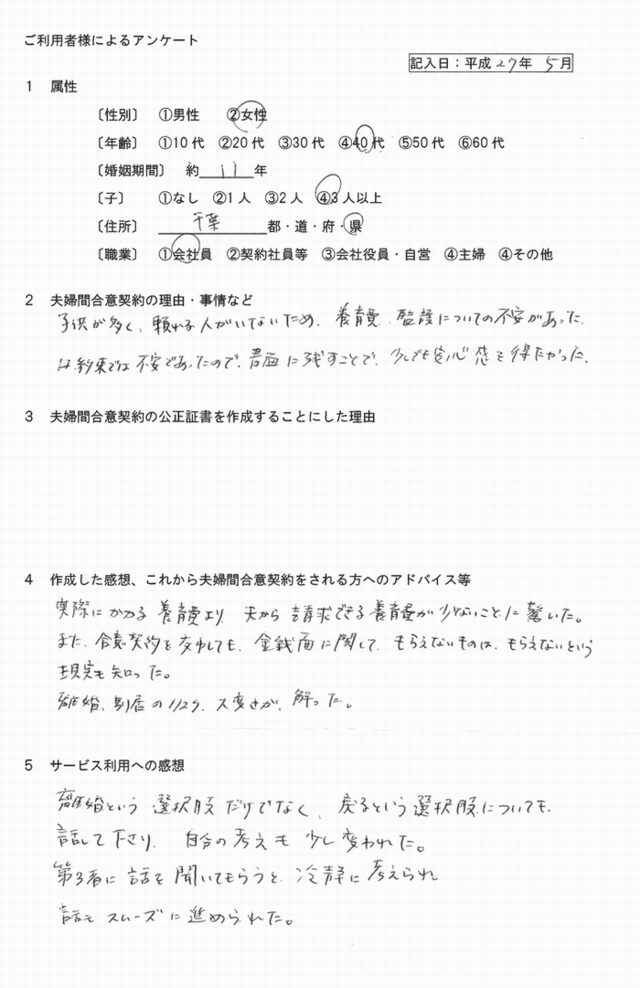 ご利用者様によるアンケート
記入日：平成27年 5月
1 属性
〔性別〕 ①男性 ②女性
〔年齢〕 ①10代 ②20代 ③30代 ④40代 ⑤50代 ⑥60代
〔婚姻期間〕 約 11 年
〔子〕 ①なし ②1人 ③2人 ④3人以上
〔住所〕 千葉 都・道・府・県
〔職業〕 ①会社員 ②契約社員等 ③会社役員・自営 ④主婦 ④その他
2 夫婦間合意契約の理由・事情など
子供が多く、頼れる人がいないため、養育費、監護についての不安があった。
約束では不安であったので、書面に残すことで、少しでも安心感を得たかった。
3 夫婦間合意契約の公正証書を作成することにした理由
4 作成した感想、これから夫婦間合意契約をされる方へのアドバイス等
実際にかかる養育費より、夫から請求できる養育費が少ないことに驚いた。
また、合意契約を交わしても、金銭面に関して、もらえないものは、もらえないという
現実も知った。
離婚、別居の 大変さが、解った。
5 サービス利用への感想
離婚という選択肢だけでなく、戻るという選択肢についても
話して下さり、自分の考えも少し変われた。
第3者に話を聞いてもらうと、冷静に考えられ
話もスムーズに進められた。